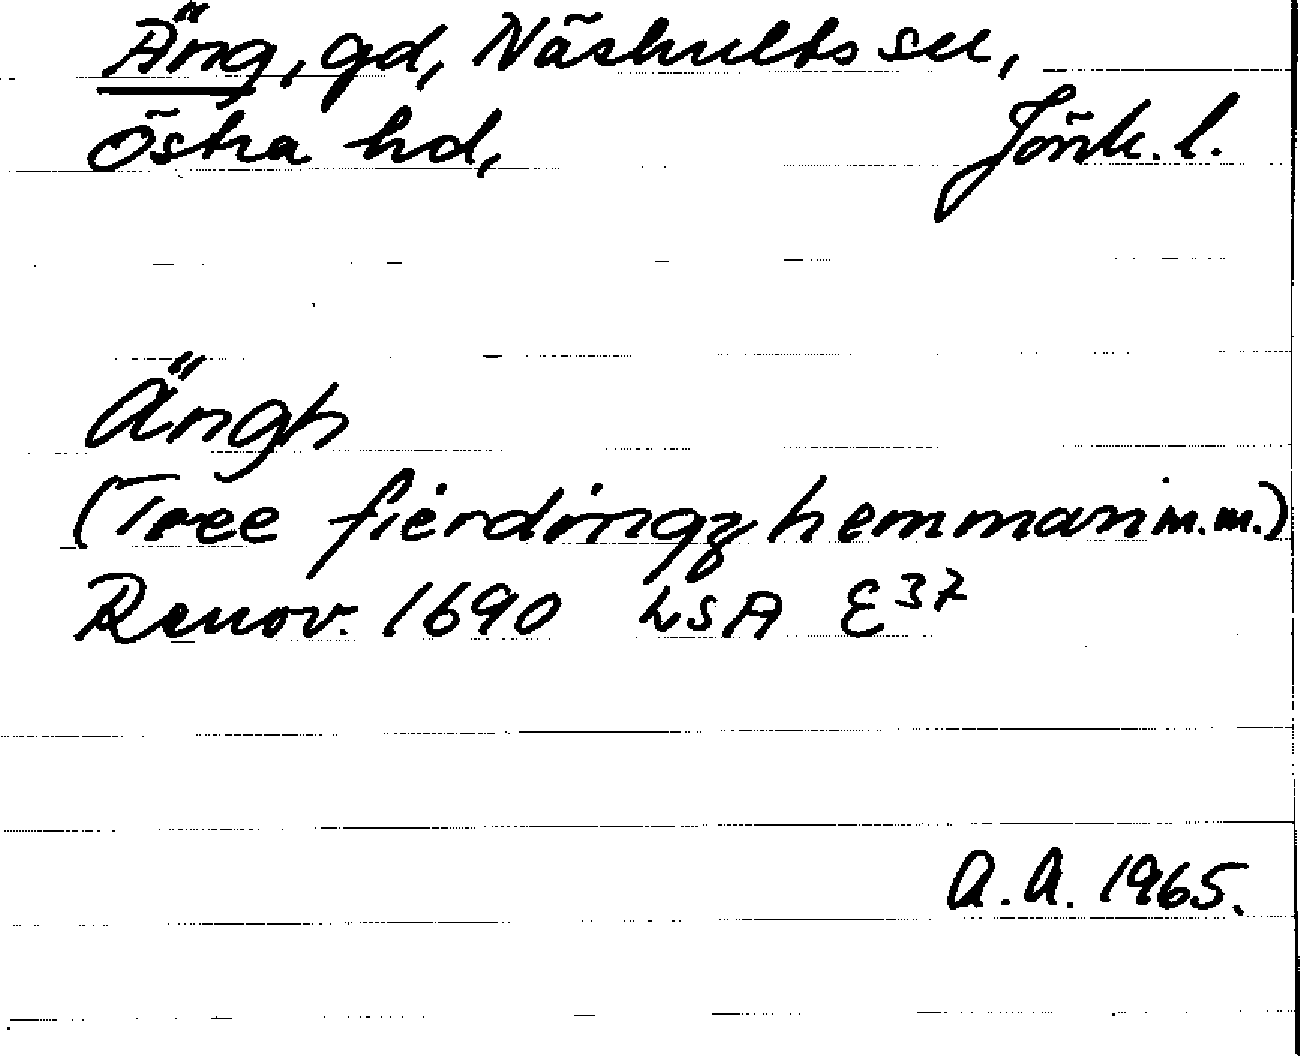 Äng, gd, Näshults sn,
Östra hd, Jönk. l.
Ängh
(Tree fierdingz hemman m.m.)
Renov. 1690 LSA E 37
A.A. 1965.